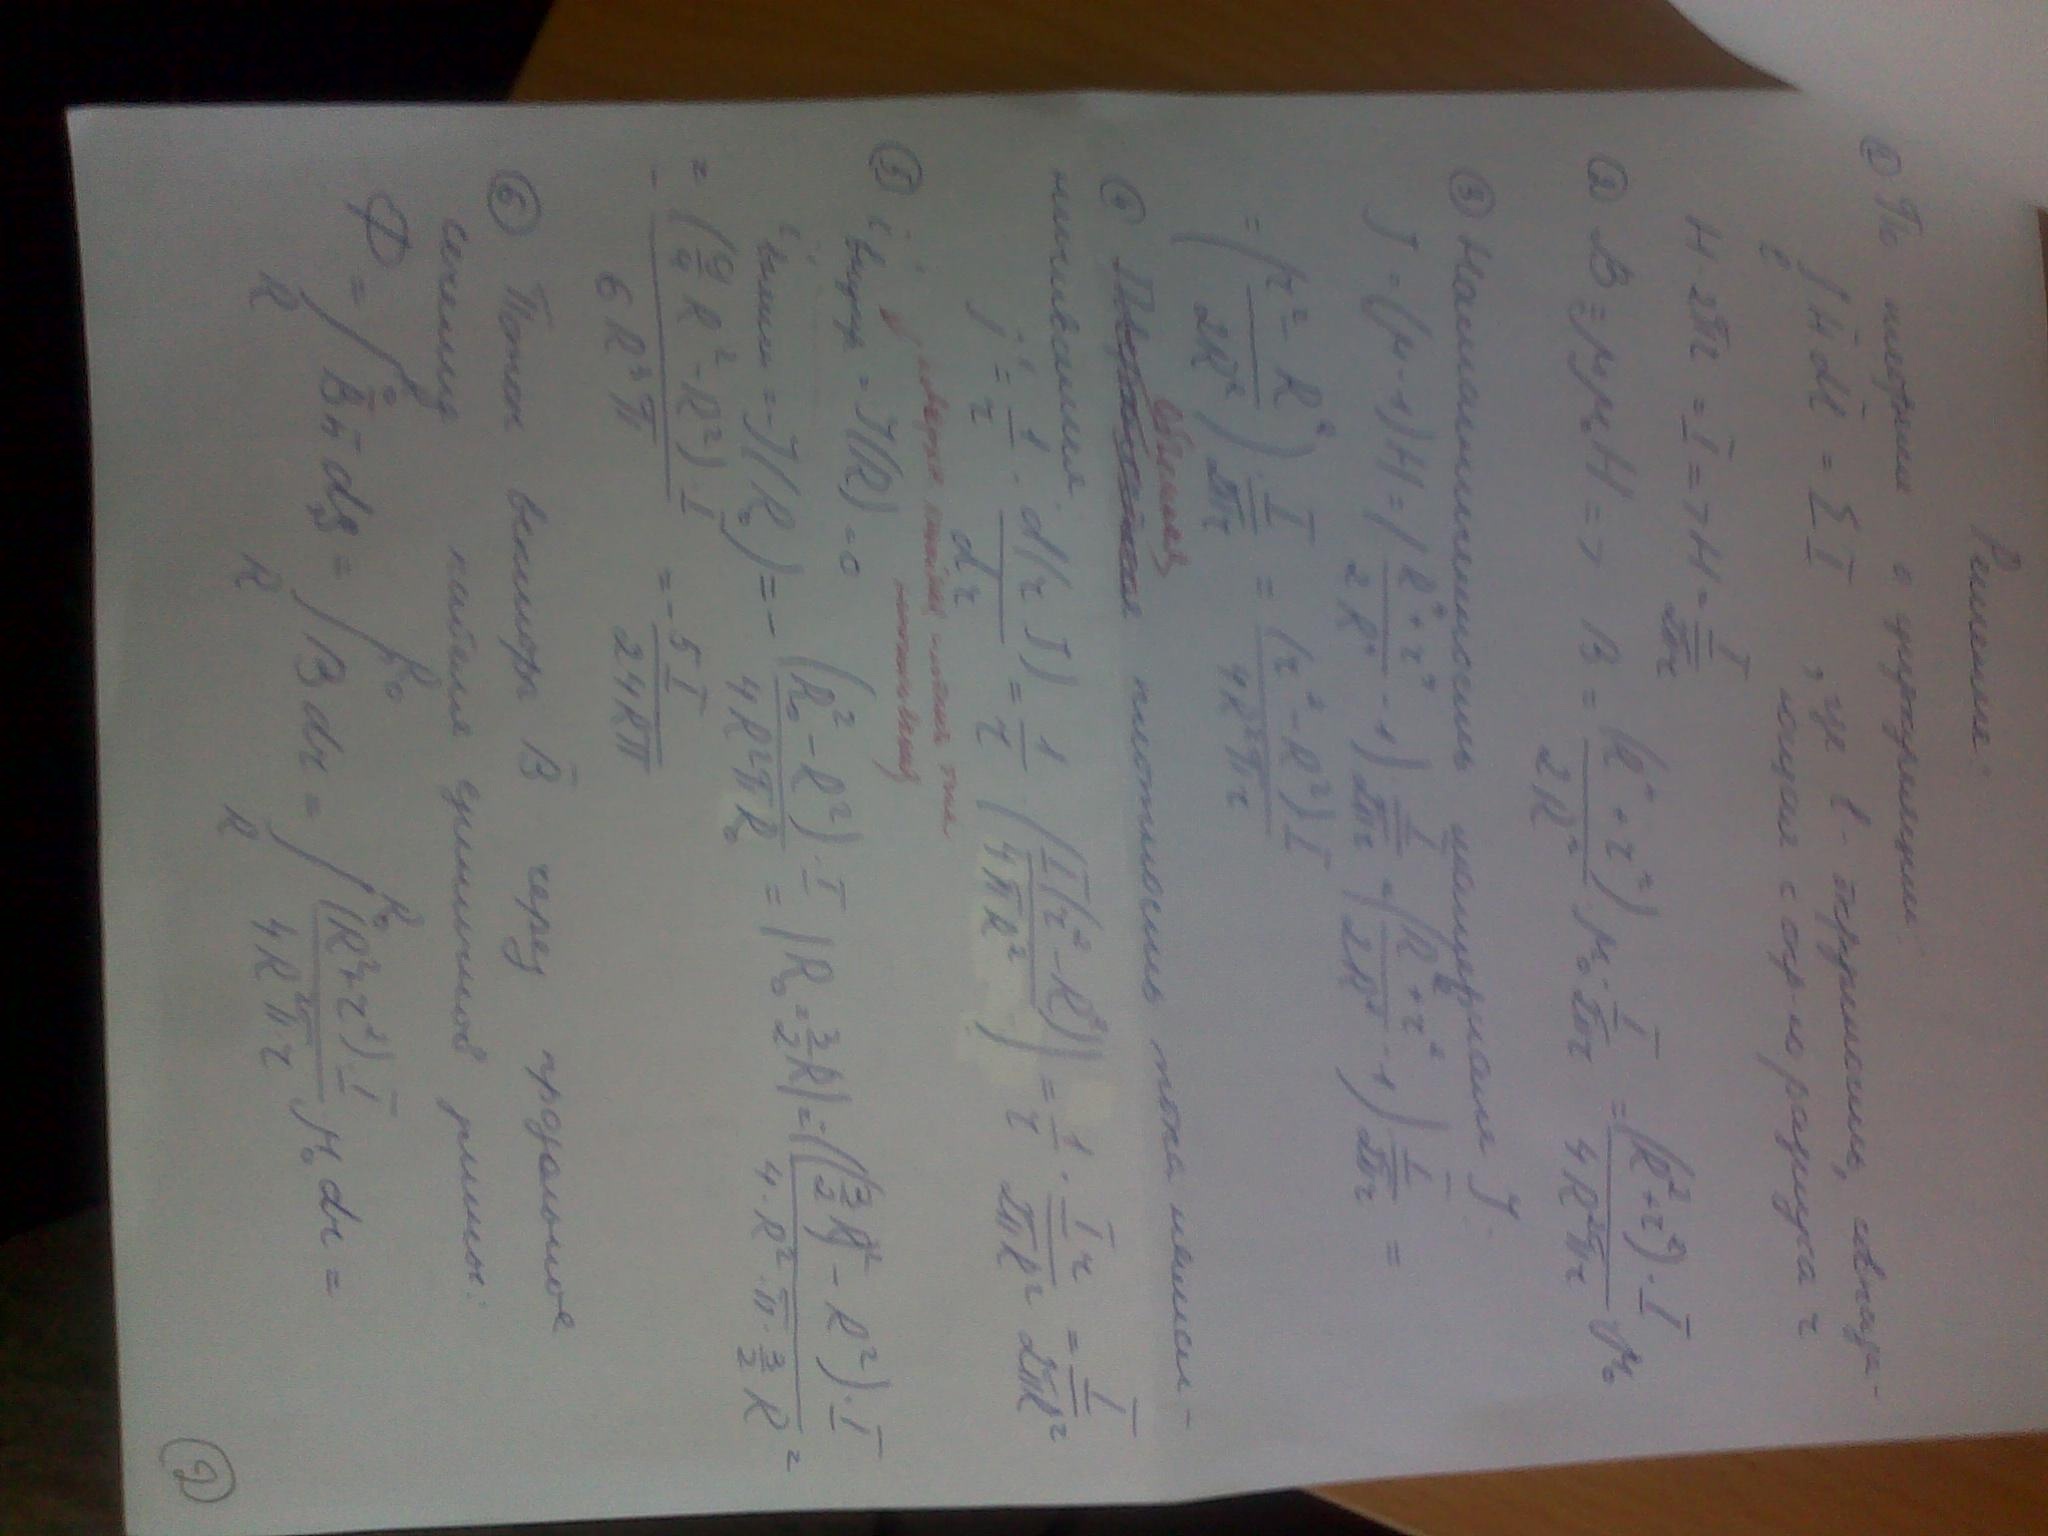 Решение.
① По теореме о циркуляции
∫_l H̄ dl̄ = Σ I , где l - окружность, совпада-
ющая с окр-ю радиуса r
H · 2πr = I => H = I/(2πr)
② B = μμ₀H => B = (R² + r²)/(2R²) · μ₀ · I/(2πr) = (R² + r²) · I/(4R²πr) · μ₀
③ Намагниченность материала J.
J = (μ - 1)H = ((R² + r²)/(2R²) - 1) · I/(2πr) = ((R² + r²)/(2R²) - 1) I/(2πr) =
= ((r² - R²)/(2R²)) · I/(2πr) = (r² - R²) I/(4R²πr)
Объемная
④ плотность тока намаг-
ничивания.
j' = 1/r · d(r J)/dr = 1/r · (I(r² - R²)/(4πR²))' = 1/r · Ir/(2πR²) = I/(2πR²)
тока
⑤ i'внутр = J(R) = 0
i'внешн = -J(R₀) = - (R₀² - R²) · I/(4R²πR₀) = |R₀ = 3/2 R| = ((3/2 R)² - R²) · I/(4 · R² · π · 3/2 R) =
= - (9/4 R² - R²) · I/(6R³π) = - 5I/(24Rπ)
⑥ Поток вектора B̄ через продольное
сечение кабеля единичной длины:
Φ = ∫_R^R₀ B̄n̄ ds = ∫_R^R₀ B dr = ∫_R^R₀ (R² + r²) · I/(4R²πr) μ₀ dr =
2